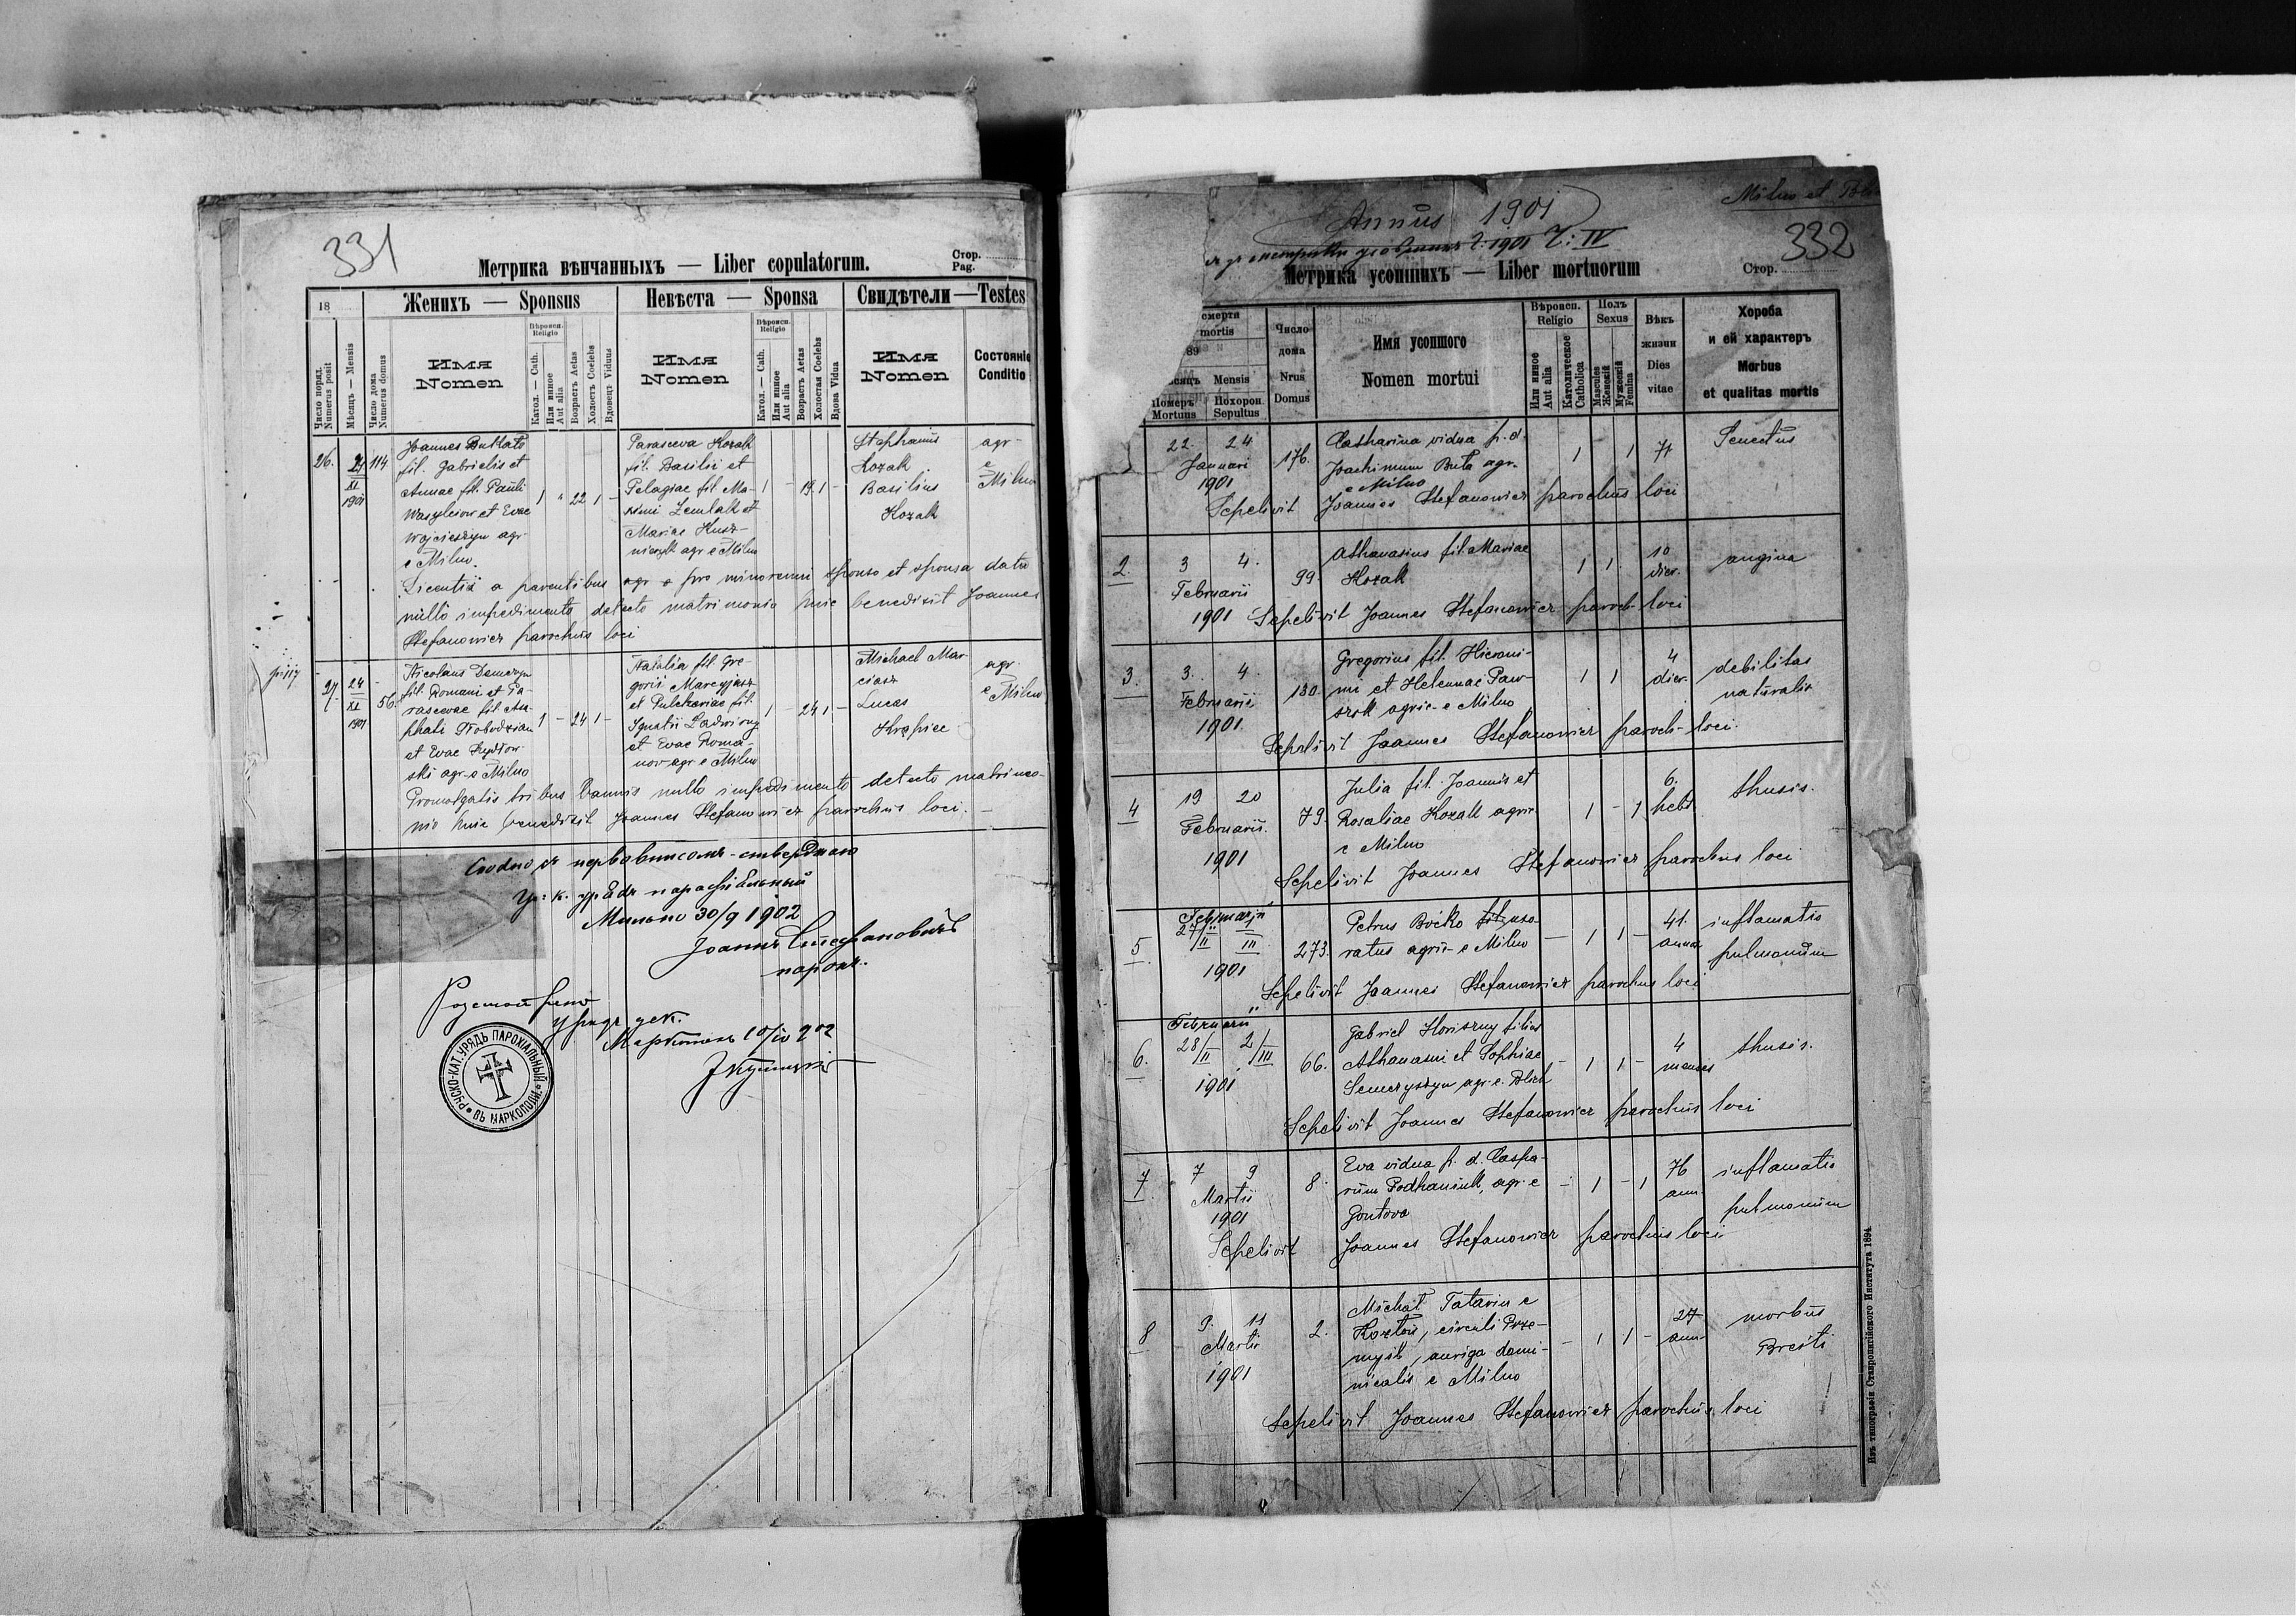 331
Метрика вѣнчанныхъ — Liber copulatorum.
Стор.
Pag.
18
Женихъ — Sponsus
Невѣста — Sponsa
Свидѣтели — Testes
Число поряд.
Numerus posit
Мѣсяцъ — Mensis
Число дома
Numerus domus
Имя
Nomen
Вѣроисп.
Religio
Катол. — Cath.
Или иниое
Aut alia
Возрастъ Aetas
Холостъ Coelebs
Вдовецъ Viduus
Имя
Nomen
Вѣроисп.
Religio
Катол. — Cath.
Или иниое
Aut alia
Возрастъ Aetas
Холостая Coelebs
Вдова Vidua
Имя
Nomen
Состояніе
Conditio
26. 24 XI 1901 114
Joannes
fil. Gabrielis et
Annae fil. Pauli
Wasylciow et Evae
Wojcieszyn agr.
e Milno.
1 " 22 1 -
Parasceva Kozak
fil. Basilii et
Pelagiae fil Ma-
ximi Zemlak et
Mariae Kusz-
nieryk agr e Milno
1 - 19. 1 -
Stephanus
Kozak
Basilius
Kozak
agr-
e
Milno
Licentia a parentibus agr e pro minorenni sponso et sponsa data
nullo impedimento detecto matrimonio huic benedixit Joannes
Stefanowicz parochus loci
27. 24 XI 1901 56.
Nicolaus Demczyn
fil. Romani et Pa-
rascevae fil
et Evae
ski agr. e Milno
1 - 24 1 -
Natalia fil. Gre-
gorii Marcyjasz
et Pulcheriae fil.
Ignatii
et Evae Roma-
now agr e Milno
1 - 24 1 -
Michael Mar-
ciasz
Lucas
Krepiec
agr.
e Milno
Promulgatis tribus bannis nullo impedimento detecto matrimo-
nio huic benedixit Joannes Stefanowicz parochus loci. —
Гр: к. урядъ парохіяльный
Мильно 30/9 1902
Іоаннъ Стефановичъ
парохъ.
РУСКО-КАТ. УРЯДЪ ПАРОХІАЛЬНЫЙ ВЪ МАРКОПОЛИ
Annus 1901
Milno et
332
Метрика усопшихъ — Liber mortuorum
Стор.
смерти
mortis
89
Mensis
Померъ
Mortuus
Похорон.
Sepultus
Число
дома
Nrus
Domus
Имя усопшого
Nomen mortui
Вѣроисп.
Religio
Или иниое
Aut alia
Католическое
Catholica
Полъ
Sexus
Mascules
Женскій
Мужескій
Femina
Вѣкъ
жизни
Dies
vitae
Хороба
и ей характеръ
Morbus
et qualitas mortis
22. 24
Januari
1901
176.
Catharina vidua p. d.
Joachimum Buta agr.
e Milno
1 1 71
Senectus
Sepelivit Joannes Stefanowicz parochus loci
2. 3 4.
Februarii
1901
99.
Athanasius fil. Mariae
Kozak
1 1. 10
dier.
angina
Sepelivit Joannes Stefanowicz paroch- loci
3. 3. 4.
Februarii
1901.
180.
Gregorius fil. Hieroni-
mi et Helennae Paw-
szok agric- e Milno
1 1 4
dier.
debilitas
naturalis
Sepelivit Joannes Stefanowicz paroch- loci.
4 19 20
Februarii.
1901
79.
Julia fil. Joannis et
Rosaliae Kozak agric
e Milno
1 - 1 6.
hebd
thusis.
Sepelivit Joannes Stefanowicz parochus loci
5. Februarii
27/II 1/III
1901
273.
Petrus Boćko fil. uxo-
ratus agric- e Milno
— 1 1 - 41.
annor.
inflamatio
pulmonum
Sepelivit Joannes Stefanowicz parochus loci
6. Februarii
28/II 2/III
1901
66.
Gabriel Horiszny filius
Athanasii et Sophiae
Semczyszyn agr. e. Blich
- 1 1 - 4
menses
thusis.
Sepelivit Joannes Stefanowicz parochus loci
7. 7 9
Martii
1901
8.
Eva vidua p. d. Caspa-
rum Podhaniuk, agr. e
Gontova
- 1 - 1 76
ann.
inflamatio
pulmonum
Sepelivit Joannes Stefanowicz parochus loci
8 9. 11
Martii
1901
2.
Michał Tatarin e
circuli Prze-
myśl, auriga domi-
nicalis e Milno
- 1 1 - 27
ann-
morbus
Breiti
Sepelivit Joannes Stefanowicz parochus loci
Изъ типографіи Ставропигійского Института 1894